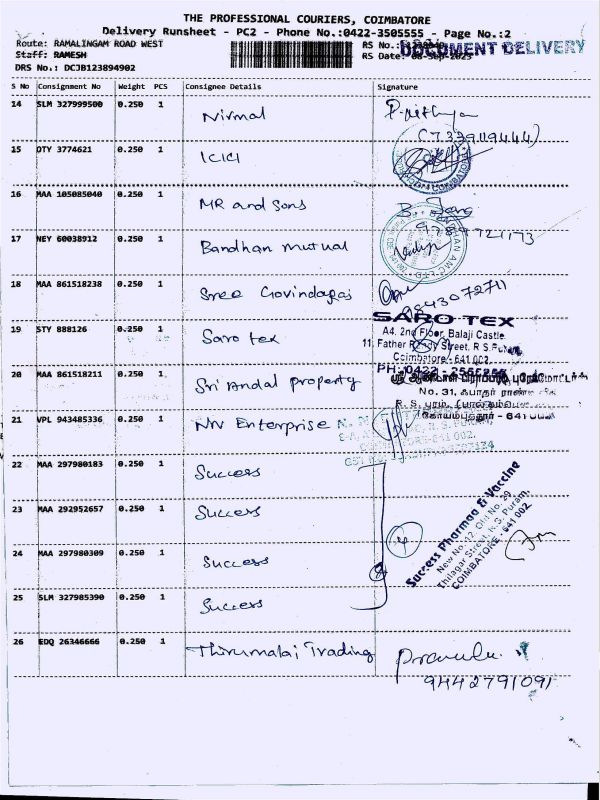 THE PROFESSIONAL COURIERS, COIMBATORE
Delivery Runsheet - PC2 - Phone No.:0422-3505555 - Page No.:2
Route: RAMALINGAM ROAD WEST
Staff: RAMESH
DRS No.: DCJB123894902
RS No.:
RS Date: 08-Sep-2023
DOCUMENT DELIVERY
S No Consignment No Weight PCS Consignee Details Signature
14 SLM 327999500 0.250 1 Nirmal
(7339119444)
15 OTY 3774621 0.250 1 ICICI
16 MAA 105085040 0.250 1 MR and Sons
9789721173
17 NEY 60038912 0.250 1 Bandhan mutual
18 MAA 861518238 0.250 1 Sree Govindaraj
9843072711
19 STY 888126 0.250 1 Saro tex
SARO TEX
A4, 2nd Floor, Balaji Castle
11, Father Street, R.S.Puram,
Coimbatore - 641 002.
PH: 0422 -
20 MAA 861518211 0.250 1 Sri Andal property
No. 31, ஃபாதர்
ஆர். எஸ். புரம்,
கோயமுத்தூர் - 641 002
21 VPL 943485336 0.250 1 NN Enterprise
22 MAA 297980183 0.250 1 Success
23 MAA 292952657 0.250 1 Success
24 MAA 297980309 0.250 1 Success
25 SLM 327985390 0.250 1 Success
Success Pharmaa & Vaccine
New No.12, Old No. 29
Thilagar Street, R.S. Puram,
COIMBATORE - 641 002
26 EDQ 26346666 0.250 1 Thirumalai Trading
9442791091